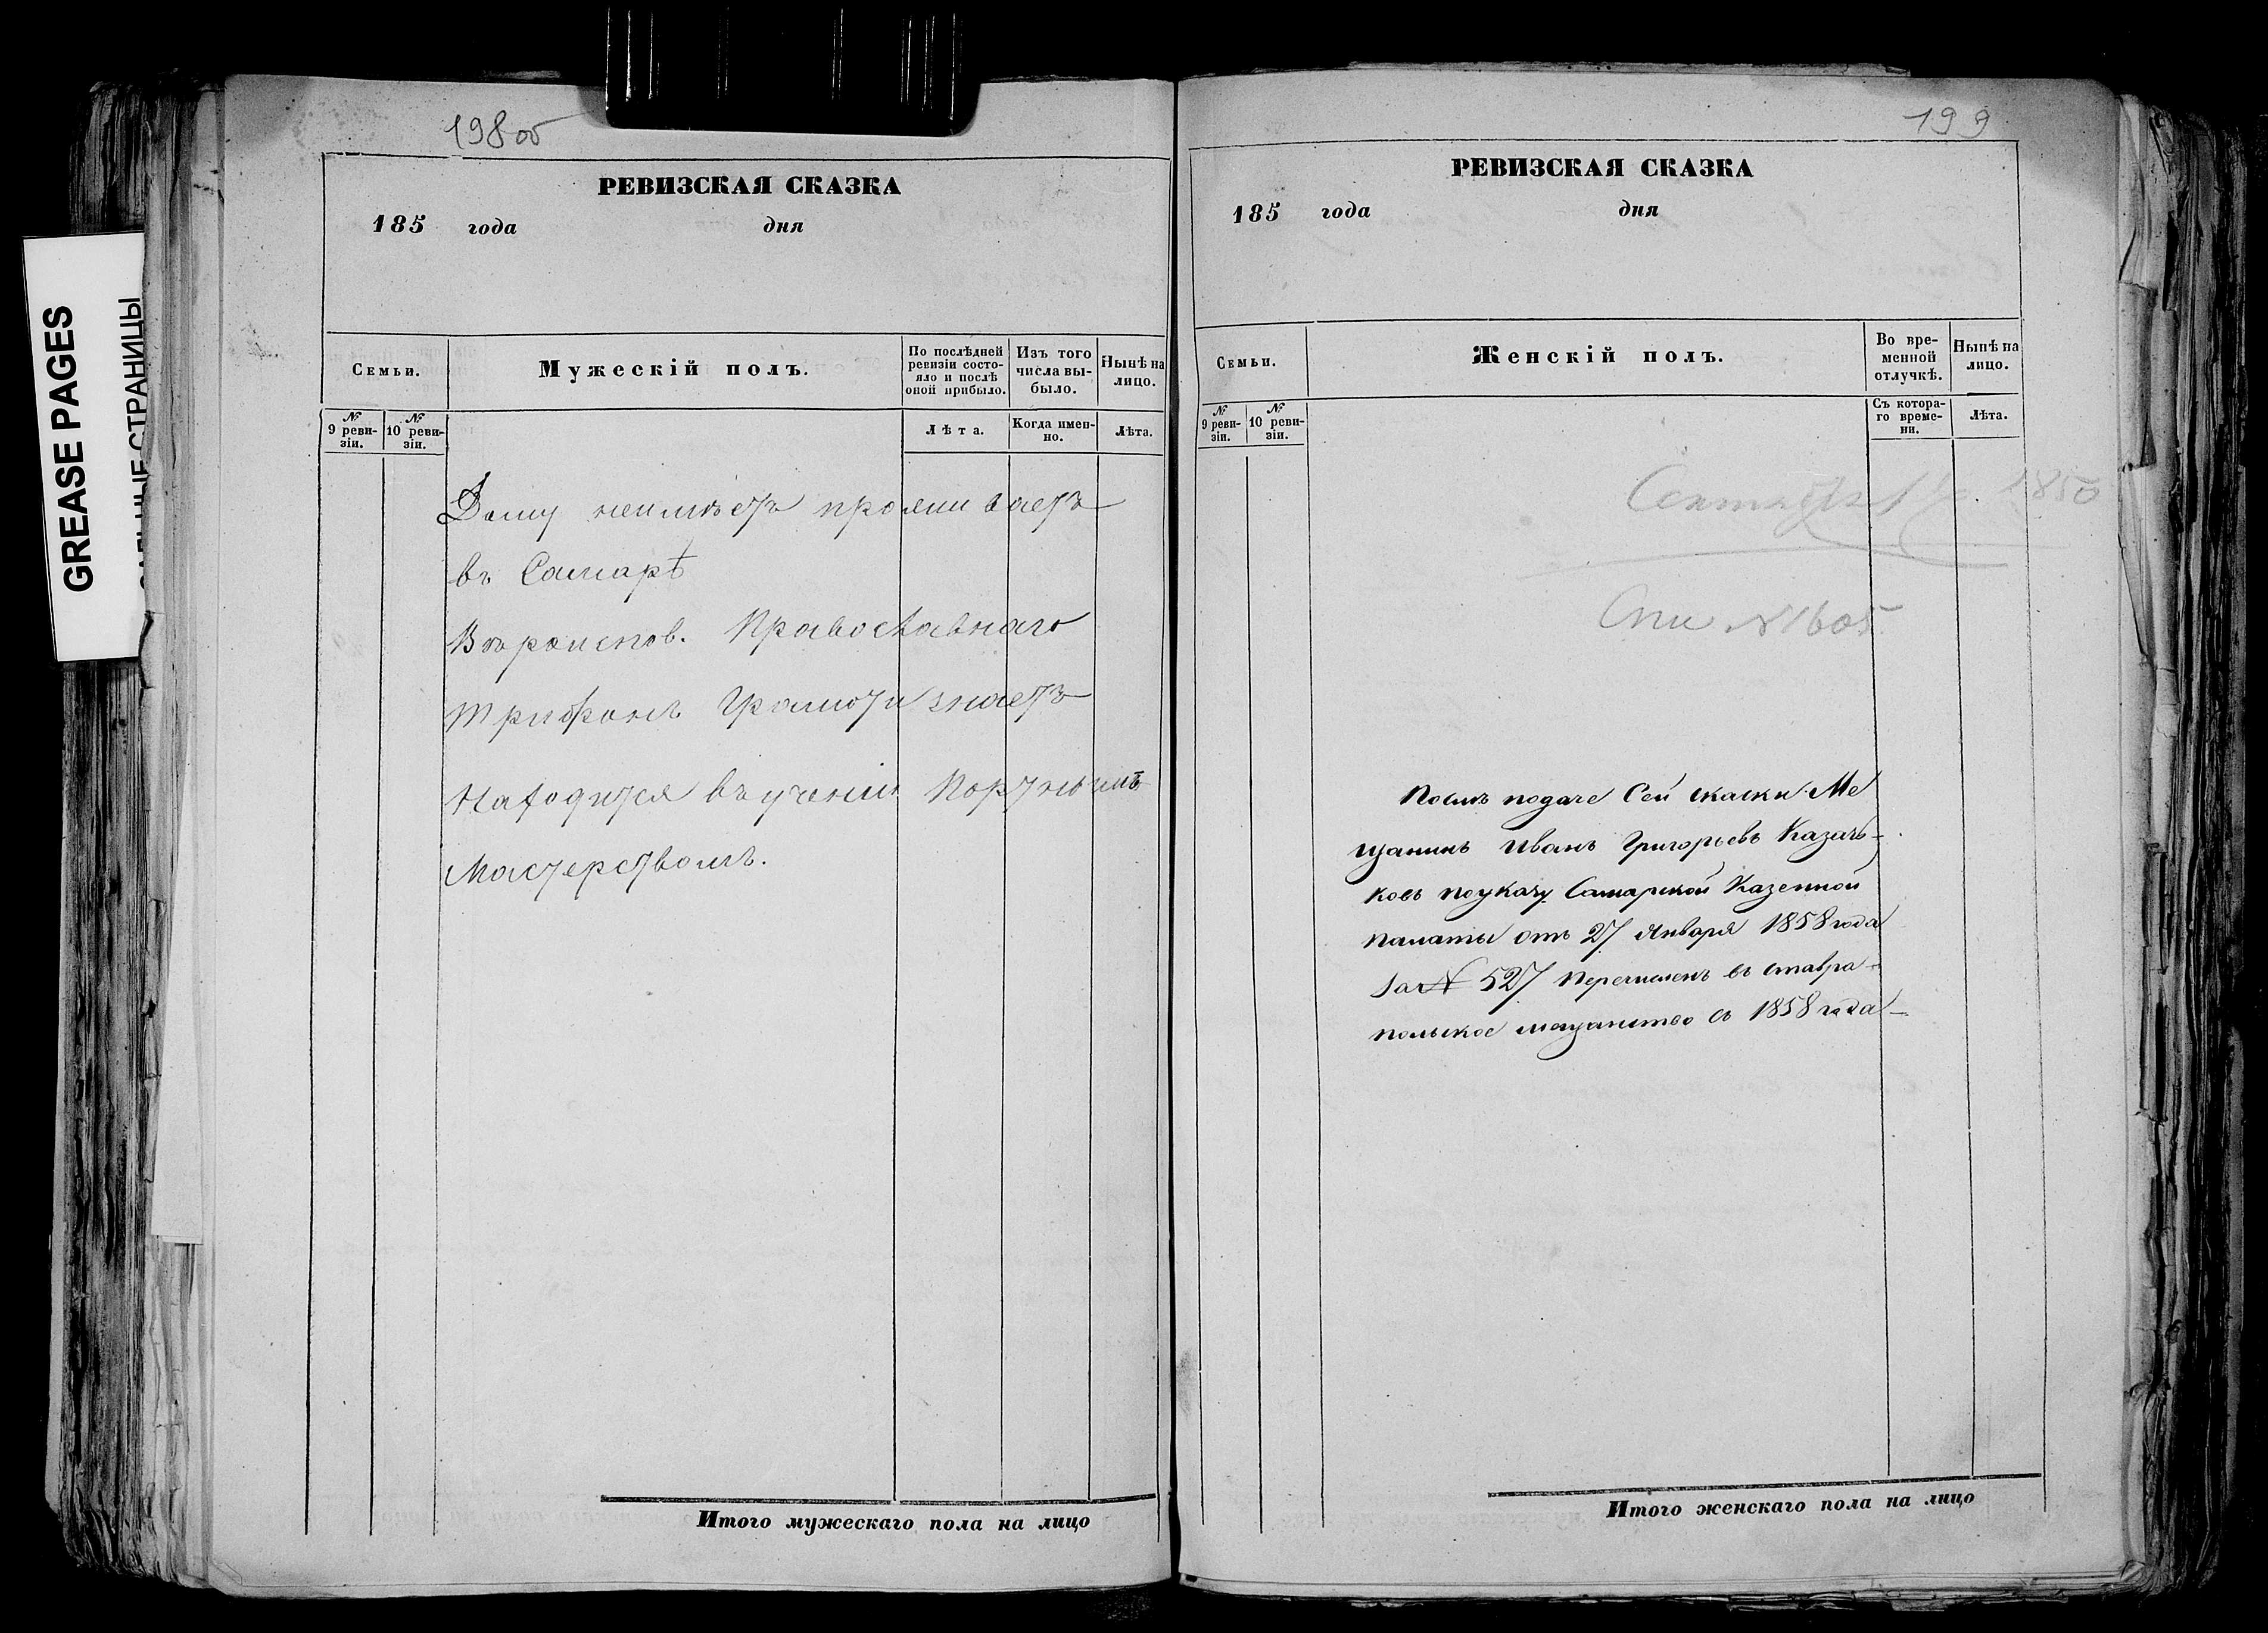 GREASE PAGES
198 об
РЕВИЗСКАЯ СКАЗКА
185 года дня
Семьи.
Мужескій полъ.
По послѣдней ревизіи состояло и послѣ оной прибыло.
Изъ того числа выбыло.
Нынѣ на лицо.
№ 9 ревизіи.
№ 10 ревизіи.
Лѣта.
Когда именно.
Лѣта.
Дому неимѣетъ проживаетъ
въ Самарѣ
Вѣроиспов. Православнаго
Трифонъ Грамоти знаетъ
Находится въ ученіи Портнымъ
Мастерствомъ.
Итого мужескаго пола на лицо
199
РЕВИЗСКАЯ СКАЗКА
185 года дня
Семьи.
Женскій полъ.
Во временной отлучкѣ.
Нынѣ на лицо.
№ 9 ревизіи.
№ 10 ревизіи.
Съ котораго времени.
Лѣта.
№ 1605
После подаче Сей скаски Ме
щанинъ Иванъ Григорьевъ Казачь-
ковъ поуказу Самарской Казенной
палаты отъ 27 Января 1858 года
за № 527 перечисленъ въ ставра-
польское мещанство съ 1858 года
Итого женскаго пола на лицо